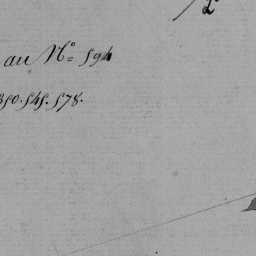 au Nº 594
350.545.578.